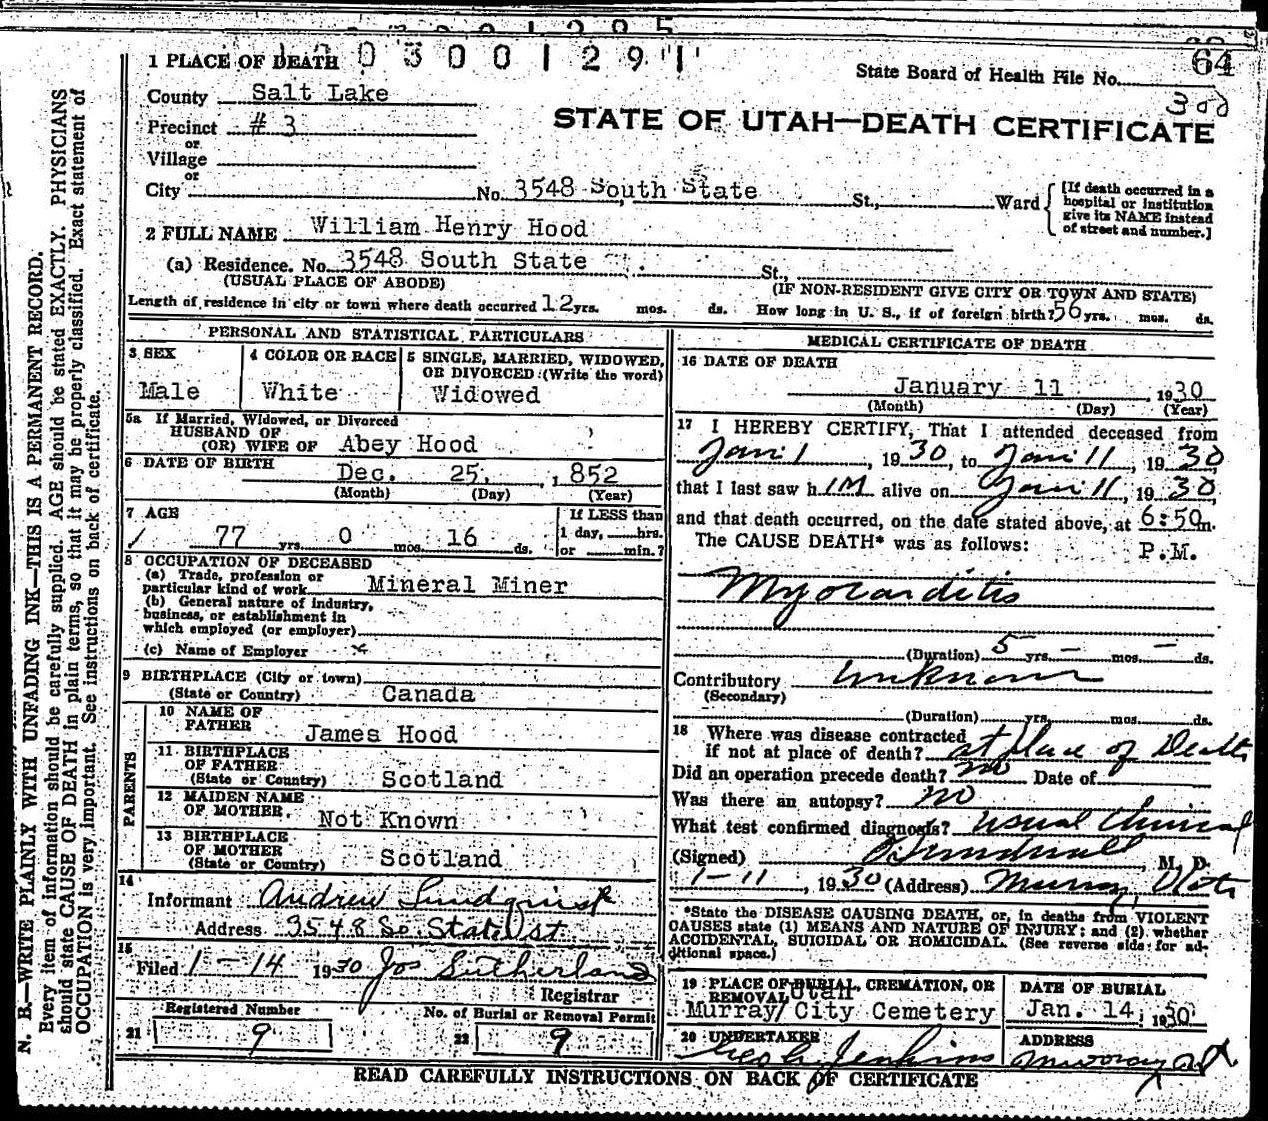 1203001291
64
1 PLACE OF DEATH
State Board of Health File No.
County Salt Lake
300
Precinct # 3
STATE OF UTAH—DEATH CERTIFICATE
or
Village
or
City No. 3548 South State St., Ward
[If death occurred in a
hospital or institution
give its NAME instead
of street and number.]
2 FULL NAME William Henry Hood
(a) Residence. No. 3548 South State St.,
(USUAL PLACE OF ABODE) (IF NON-RESIDENT GIVE CITY OR TOWN AND STATE)
Length of residence in city or town where death occurred 12 yrs. mos. ds. How long in U. S., if of foreign birth? 56 yrs. mos. ds.
PERSONAL AND STATISTICAL PARTICULARS
3 SEX
Male
4 COLOR OR RACE
White
5 SINGLE, MARRIED, WIDOWED,
OR DIVORCED (Write the word)
Widowed
5a If Married, Widowed, or Divorced
HUSBAND OF
(OR) WIFE OF Abey Hood
6 DATE OF BIRTH
Dec. 25, 1852
(Month) (Day) (Year)
7 AGE
77 yrs. 0 mos. 16 ds.
If LESS than
1 day, hrs.
or min.?
8 OCCUPATION OF DECEASED
(a) Trade, profession or
particular kind of work Mineral Miner
(b) General nature of industry,
business, or establishment in
which employed (or employer)
(c) Name of Employer
9 BIRTHPLACE (City or town)
(State or Country) Canada
PARENTS
10 NAME OF
FATHER James Hood
11 BIRTHPLACE
OF FATHER
(State or Country) Scotland
12 MAIDEN NAME
OF MOTHER. Not Known
13 BIRTHPLACE
OF MOTHER
(State or Country) Scotland
14
Informant Andrew Lundquist
Address 3548 So State St.
15
Filed 1-14 1930 Jos Sutherland
Registrar
Registered Number
21 9
No. of Burial or Removal Permit
22 9
MEDICAL CERTIFICATE OF DEATH
16 DATE OF DEATH
January 11, 1930
(Month) (Day) (Year)
17 I HEREBY CERTIFY, That I attended deceased from
Jan 1, 1930, to Jan 11, 1930
that I last saw h IM alive on Jan 11, 1930,
and that death occurred, on the date stated above, at 6:50 m.
The CAUSE DEATH* was as follows: P.M.
Myocarditis
(Duration) 5 yrs. — mos. — ds.
Contributory unknown
(Secondary)
(Duration) yrs. mos. ds.
18 Where was disease contracted
if not at place of death? at place of Death
Did an operation precede death? no Date of
Was there an autopsy? no
What test confirmed diagnosis? usual clinical
(Signed) M. D.
1-11, 1930 (Address) Murray, Utah
*State the DISEASE CAUSING DEATH, or, in deaths from VIOLENT
CAUSES state (1) MEANS AND NATURE OF INJURY; and (2) whether
ACCIDENTAL, SUICIDAL OR HOMICIDAL. (See reverse side for ad-
ditional space.)
19 PLACE OF BURIAL, CREMATION, OR
REMOVAL Utah
Murray/ City Cemetery
DATE OF BURIAL
Jan. 14, 1930
20 UNDERTAKER
Jenkins
ADDRESS
Murray Ut
READ CAREFULLY INSTRUCTIONS ON BACK OF CERTIFICATE
N. B.—WRITE PLAINLY WITH UNFADING INK—THIS IS A PERMANENT RECORD.
Every item of information should be carefully supplied. AGE should be stated EXACTLY. PHYSICIANS
should state CAUSE OF DEATH in plain terms, so that it may be properly classified. Exact statement of
OCCUPATION is very important. See instructions on back of certificate.